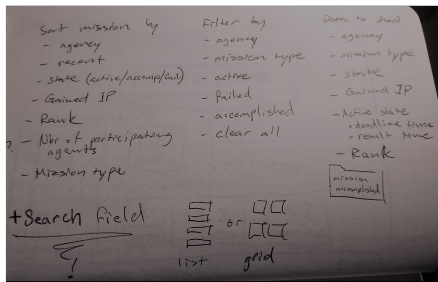 Sort mission by
- agency
- recent
- state (active/accomp/fail)
- Gained IP
- Rank
?. - Nbr of participating
agents
- Mission type
Filter by
- agency
- mission type
- active
- failed
- accomplished
- clear all
Data to show
- agency
- mission type
- state
- Gained IP
- Active state
• deadline time
• result time
- Rank
mission
accomplished
+Search field
!
list
or
grid